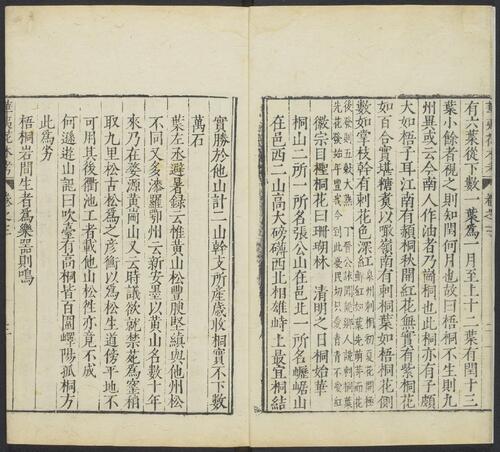 有六葉從下數一葉爲一月至上十二葉有閏十三
葉小餘者視之則知閏何月也故曰梧桐不生則九
州異或云今南人作油者乃崗桐也此桐亦有子頗
大如梧于耳江南有頳桐秋開紅花無實有紫桐花
如百合實堪糖煑以啖嶺南有刺桐葉如梧桐花側
敷如掌枝幹有刺花色深紅
徽宗目檉桐花曰珊瑚林 清明之日桐始華
桐山二所一所名張公山在邑北一所名
在邑西二山高大磅礡西北相雄峙上最宜桐結
實勝於他山計二山幹支所産歲收桐實不下數
萬石
葉左丞避暑録云惟黄山松豐腴堅縝與他州松
不同又多漆羅鄂州云新安墨以黄山名數十年
來乃在婺源黄崗山又云時議欲就禁苑爲窰稍
取九里松古松爲之彦衡以爲松生道傍平地不
可用其後衢池工者載他山松徃亦竟不成
何遜遊山記曰吹臺有高桐皆百圍嶧陽孤桐方
此爲劣
梧桐石間生者爲樂器則鳴